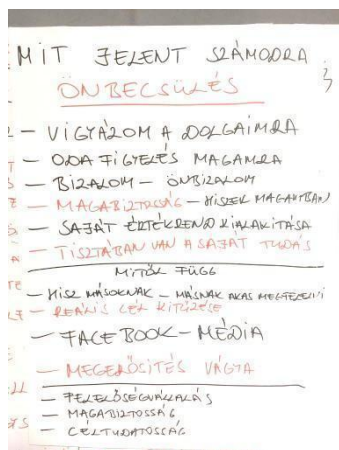 MIT JELENT SZÁMODRA
ÖNBECSÜLÉS ?
– VIGYÁZOM A DOLGAIMRA
– ODA FIGYELÉS MAGAMRA
– BIZALOM – ÖNBIZALOM
– MAGABIZTOSSÁG – HISZEK MAGAMBAN
– SAJÁT ÉRTÉKREND KIALAKITÁSA
– TISZTÁBAN VAN A SAJÁT TUDÁS
MITŐL FÜGG
– HISZ MÁSOKNAK – MÁSNAK AKAR MEGFELELNI
– REÁLIS CÉL KITŰZÉSE
– FACEBOOK – MÉDIA
– MEGERŐSITÉS VÁGYA
– FELELŐSÉGVÁLLALÁS
– MAGABIZTOSSÁG
– CÉLTUDATOSSÁG